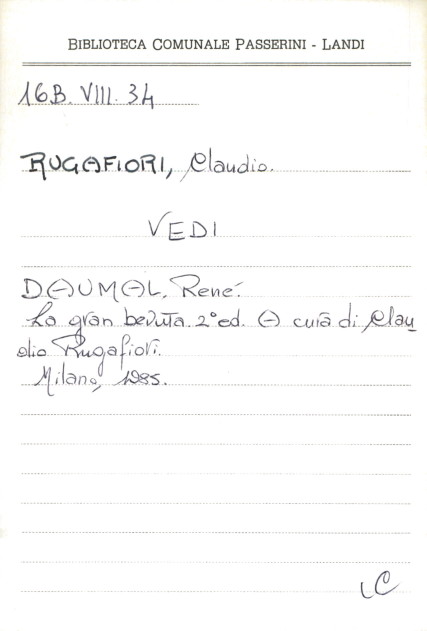 BIBLIOTECA COMUNALE PASSERINI - LANDI
16B. VIII. 34
RUGAFIORI, Claudio.
VEDI
DAUMAL, René.
La gran bevuta. 2° ed. A cura di Clau
dio Rugafiori.
Milano, 1985.